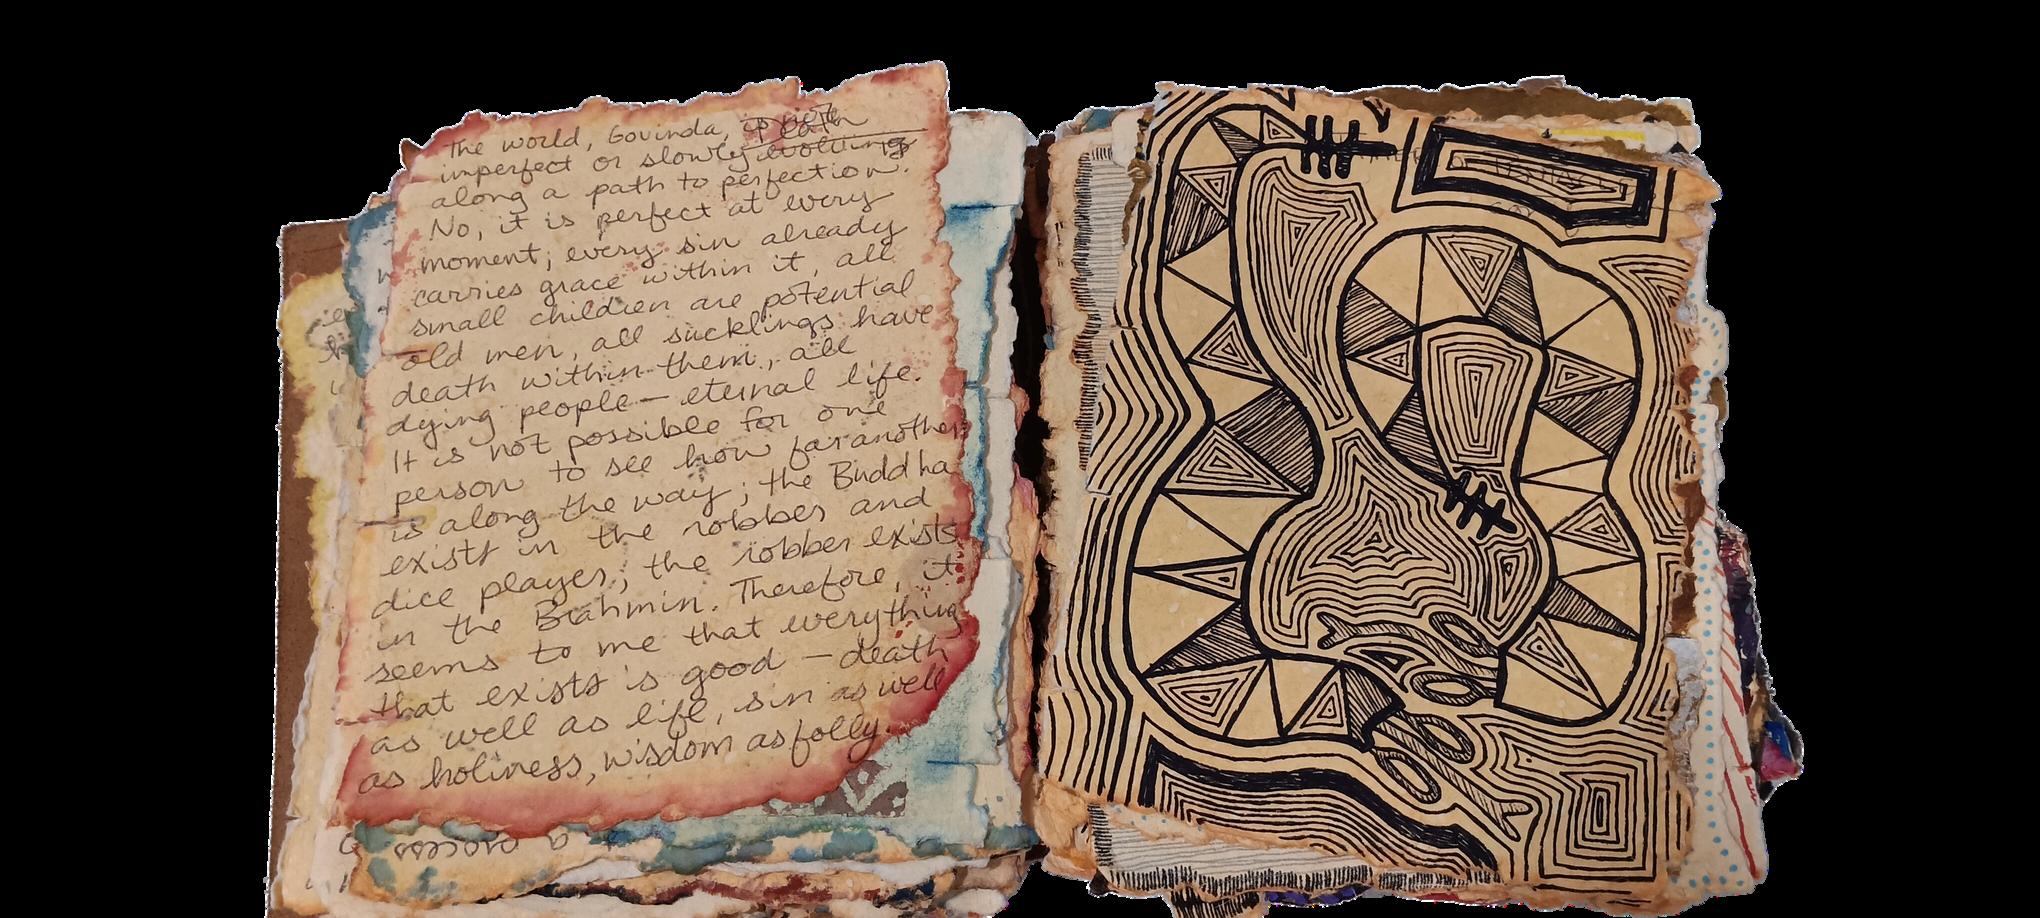 The world, Govinda, is not
imperfect or slowly evolving
along a path to perfection.
No, it is perfect at every
moment; every sin already
carries grace within it, all
small children are potential
old men, all sucklings have
death within them, all
dying people — eternal life.
It is not possible for one
person to see how far another
is along the way; the Buddha
exists in the robber and
dice player; the robber exists
in the Brahmin. Therefore, it
seems to me that everything
that exists is good — death
as well as life, sin as well
as holiness, wisdom as folly.